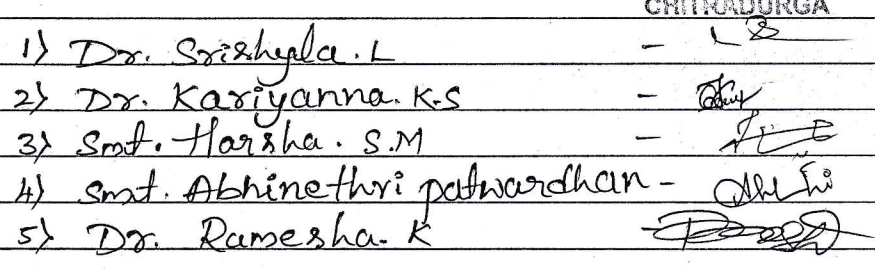 CHITRADURGA
1) Dr. Srishyla. L -
2) Dr. Kariyanna. K.S -
3) Smt. Harsha. S.M -
4) Smt. Abhinethri patwardhan -
5) Dr. Ramesha. K -